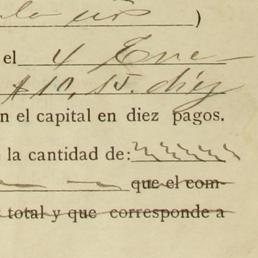 )
el 4 Ene
$10,15. diez
n el capital en diez pagos.
la cantidad de:
que el com-
total y que corresponde a